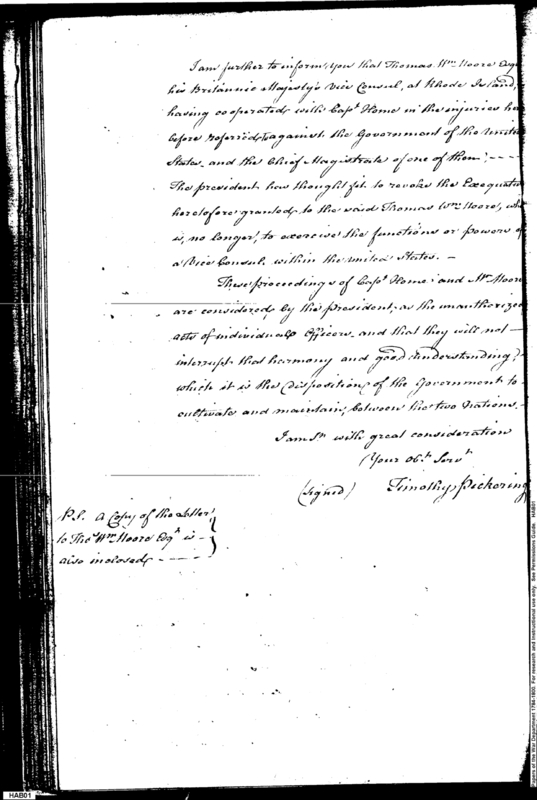 I am further to inform, you that Thomas Wm. Moore Esqr
his Britannic Majesty's Vice Consul, at Rhode Island,
having cooperated with Capt. Home in the injuries he
before referred, against the Government of the Unite
States, and the Chief Magistrate of one of them: ----
The president has thought fit to revoke the Exequatu
heretofore granted, to the said Thomas Wm. Moore, wh
is, no longer, to exercise the functions or powers of
a Vice Consul, within the united States. —
These proceedings of Capt. Home and Mr. Moore
are considered by the president, as the unauthorized
acts of individual Officers, and that they will not —
interrupt that harmony and good understanding,
which it is the disposition, of the Government to
cultivate and maintain, between the two Nations. —
I am Sr. with great consideration
Your Obt. Servt.
(signed) Timothy Pickering
P.S. a Copy of the Letter
to Thos. Wm. Moore Esqr. is —
also inclosed ----
HAB01
Papers of the War Department 1784-1800. For research and instructional use only. See Permissions Guide. HAB01